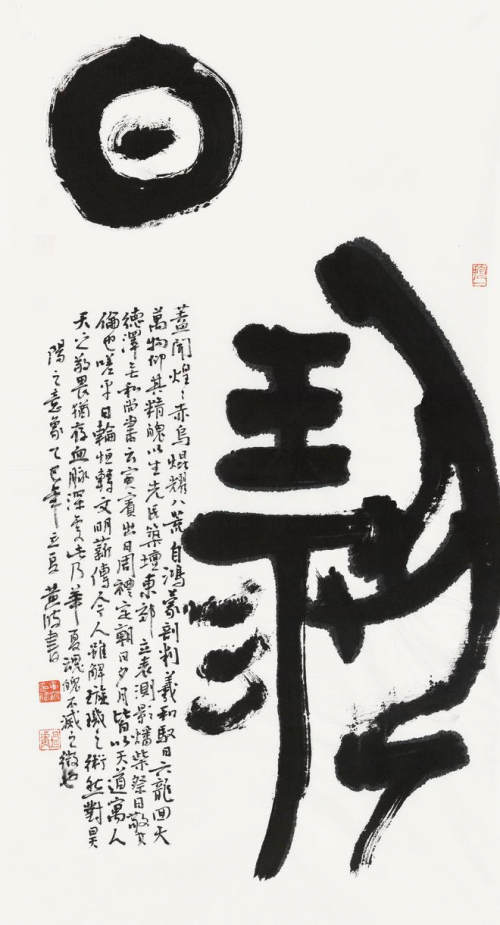 日
蓋聞煌〻赤烏焜耀八荒自鴻蒙剖判羲和馭日六龍回天
萬物仰其精魄以生先民築壇東郊立表測影燔柴祭日敬其
德澤无私尚書云寅賓出日周禮定朝日夕月皆以天道寓人
倫也嗟乎日輪恒轉文明薪傳今人雖解璇璣之術然對昊
天之敬畏猶存血脈深處此乃華夏魂魄不滅之徵也
陽之意象乙巳年立夏黃書